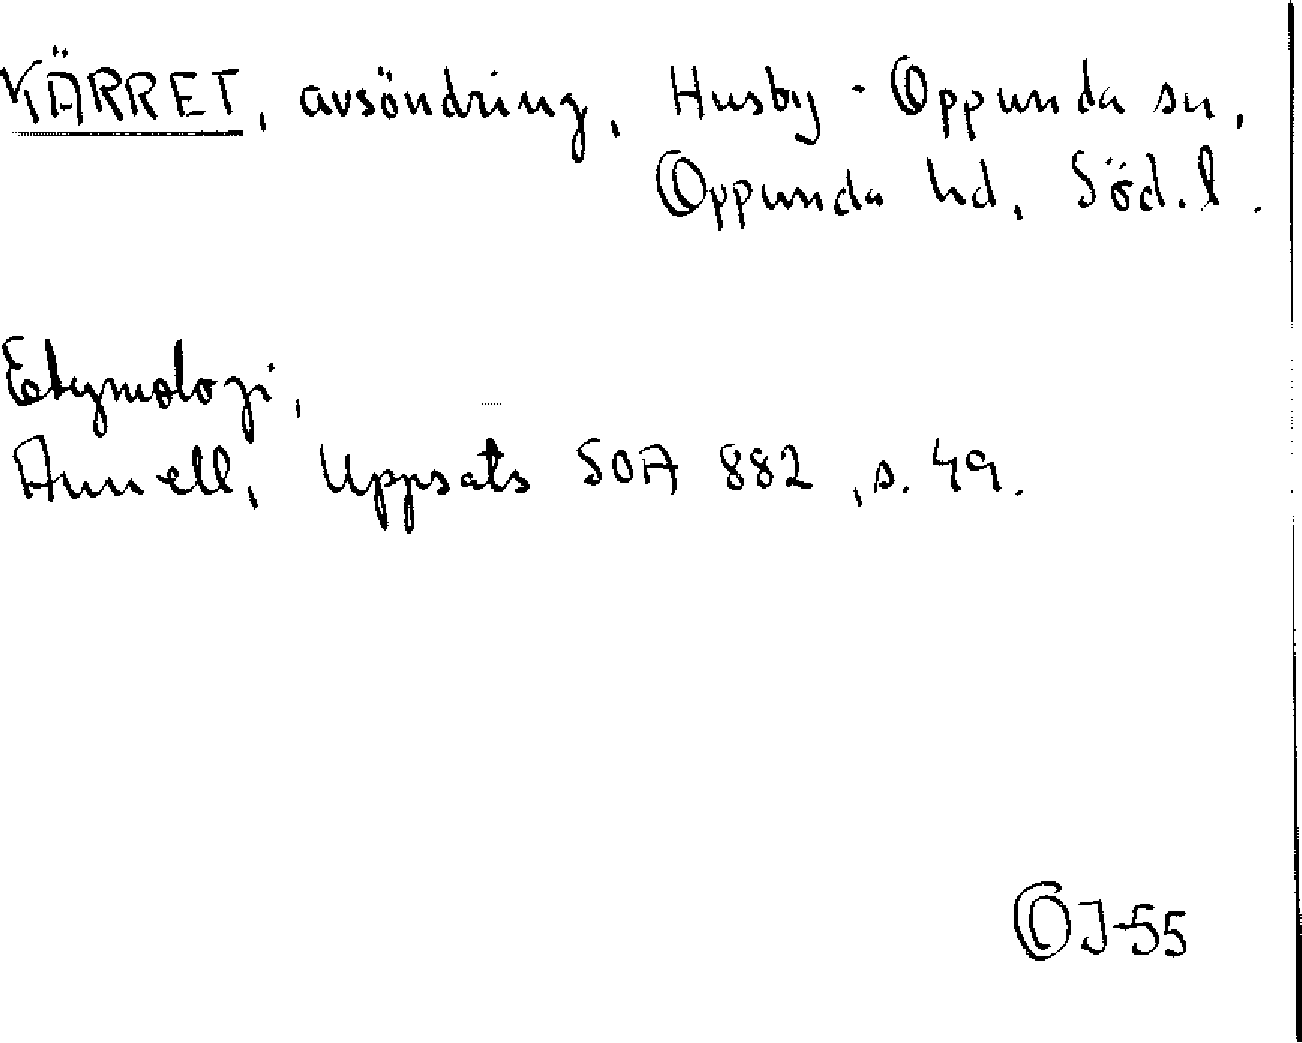 KÄRRET, avsöndring, Husby-Oppunda sn,
Oppunda hd, Söd.l.
Etymologi,
Annell, Uppsats SOA 882, s. 49.
OJ-55